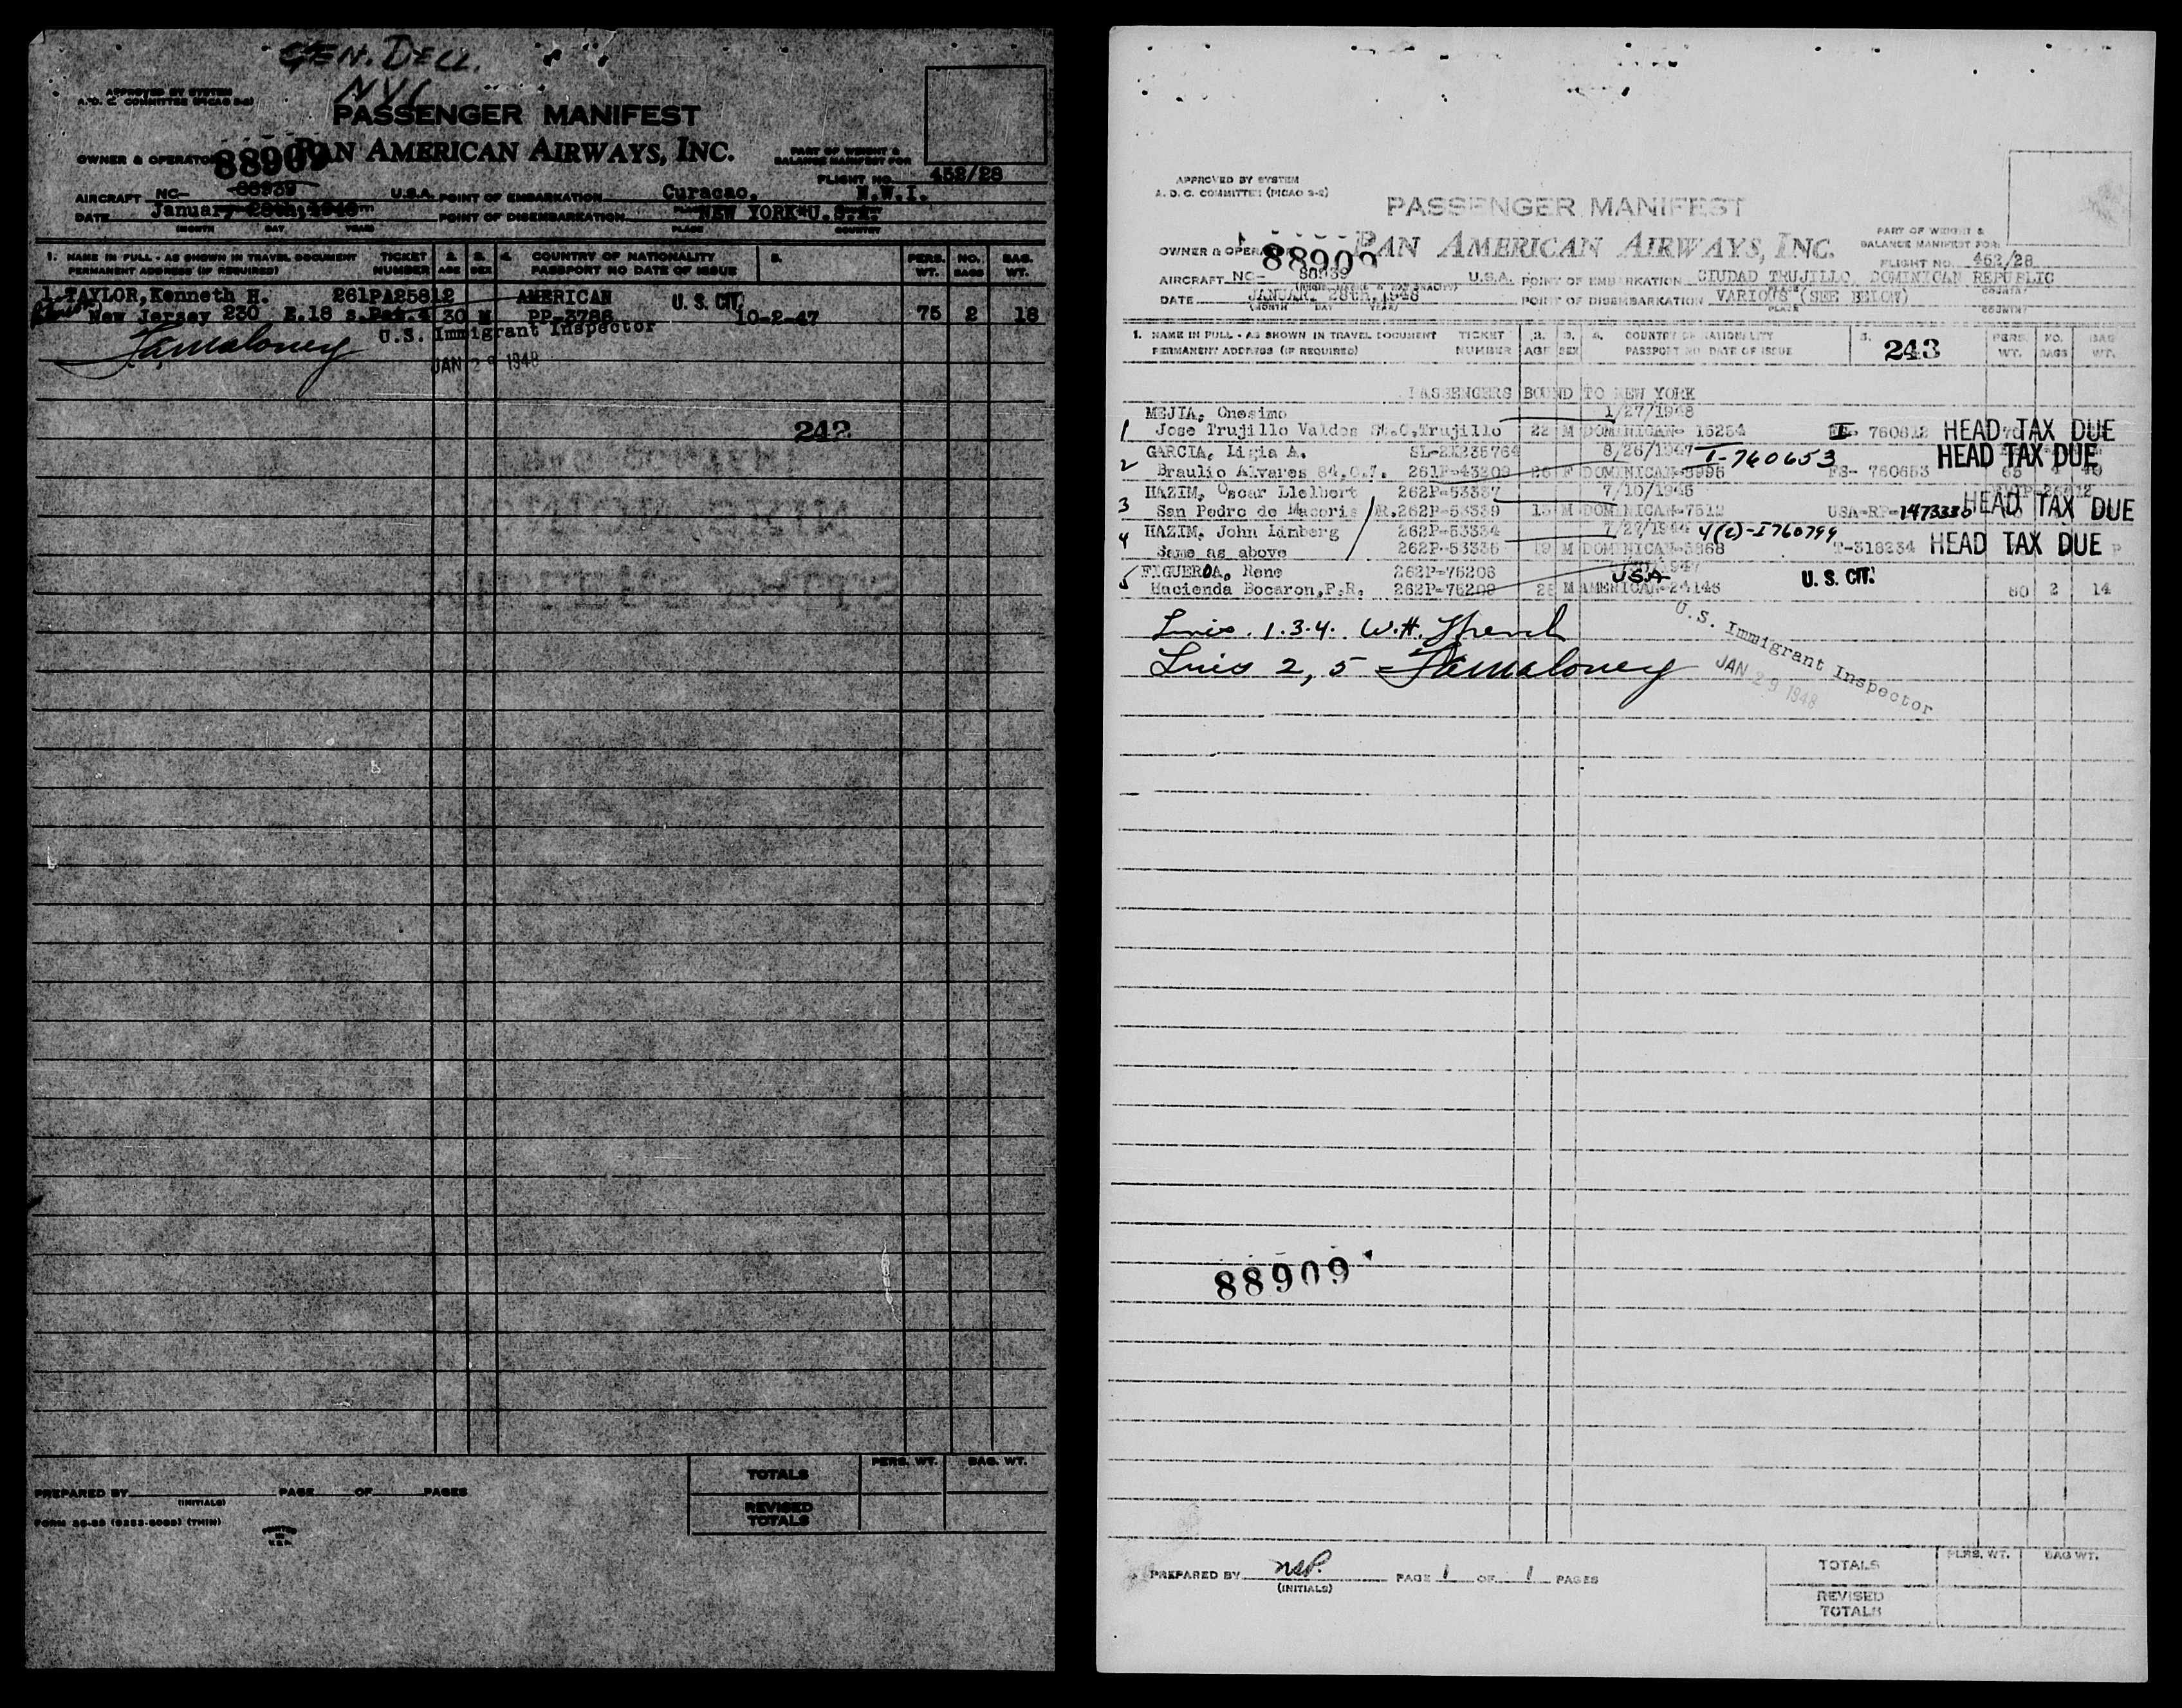 GEN. DELL.
NYC
APPROVED BY SYSTEM
A. D. C. COMMITTEE (PICAO 2-2)
PASSENGER MANIFEST
OWNER & OPERATOR 88909 PAN AMERICAN AIRWAYS, INC.
PART OF WEIGHT &
BALANCE MANIFEST FOR
FLIGHT NO. 452/28
AIRCRAFT NC- 88939 U.S.A. POINT OF EMBARKATION Curacao, N.W.I.
DATE January 28th, 1948 POINT OF DISEMBARKATION NEW YORK U.S.A.
(MONTH DAY YEAR) PLACE COUNTRY
1. NAME IN FULL - AS SHOWN IN TRAVEL DOCUMENT TICKET 2. 3. 4. COUNTRY OF NATIONALITY 5. PERS. NO. BAG.
PERMANENT ADDRESS (IF REQUIRED) NUMBER AGE SEX PASSPORT NO DATE OF ISSUE WT. BAGS WT.
1. TAYLOR, Kenneth H. 261PA25812 AMERICAN U. S. CIT.
New Jersey 230 E.18 s. Pat. 4 30 M PP-3786 10-2-47 75 2 18
U.S. Immigrant Inspector
JAN 29 1948
242
TOTALS PERS. WT. BAG. WT.
PREPARED BY (INITIALS) PAGE OF PAGES
REVISED
TOTALS
PRINTED
IN
U.S.A.
APPROVED BY SYSTEM
A. D. C. COMMITTEE (PICAO 2-2)
PASSENGER MANIFEST
OWNER & OPERATOR 88909 PAN AMERICAN AIRWAYS, INC.
PART OF WEIGHT &
BALANCE MANIFEST FOR
FLIGHT NO. 452/28
AIRCRAFT NC- 88939 U.S.A. POINT OF EMBARKATION CIUDAD TRUJILLO, DOMINICAN REPUBLIC
DATE JANUARY 28th, 1948 POINT OF DISEMBARKATION VARIOUS (SEE BELOW)
(MONTH DAY YEAR) PLACE COUNTRY
1. NAME IN FULL - AS SHOWN IN TRAVEL DOCUMENT TICKET 2. 3. 4. COUNTRY OF NATIONALITY 5. 243 PERS. NO. BAG
PERMANENT ADDRESS (IF REQUIRED) NUMBER AGE SEX PASSPORT NO DATE OF ISSUE WT. BAGS WT.
PASSENGERS BOUND TO NEW YORK
MEJIA, Onesimo 1/27/1948
1 Jose Trujillo Valdes St. C, Trujillo 22 M DOMINICAN- 15254 760612 HEAD TAX DUE
GARCIA, Ligia A. 8/26/1947 I-760653 HEAD TAX DUE
2 Braulio Alvares 84, C.T. 261P-43209 26 F DOMINICAN-3995 FS- 760653
HAZIM, Oscar Llelbert 262P-53337
3 San Pedro de Macoris R. 262P-53339 M DOMINICAN-7512 1473336 HEAD TAX DUE
HAZIM, John Limberg 262P-53334 7/27/1944 4(e)-I760799
4 Same as above 262P-53335 19 M DOMINICAN-3868 T-318234 HEAD TAX DUE
FIGUEROA, Rene 262P-76208 USA
5 Hacienda Bocaron, P.R. 262P-76209 M AMERICAN-24146 U. S. CIT. 80 2 14
Lines 1.3.4. W.H.
Lines 2, 5
U.S. Immigrant Inspector
JAN 29 1948
88909
TOTALS PERS. WT. BAG WT.
PREPARED BY (INITIALS) PAGE 1 OF 1 PAGES
REVISED
TOTALS